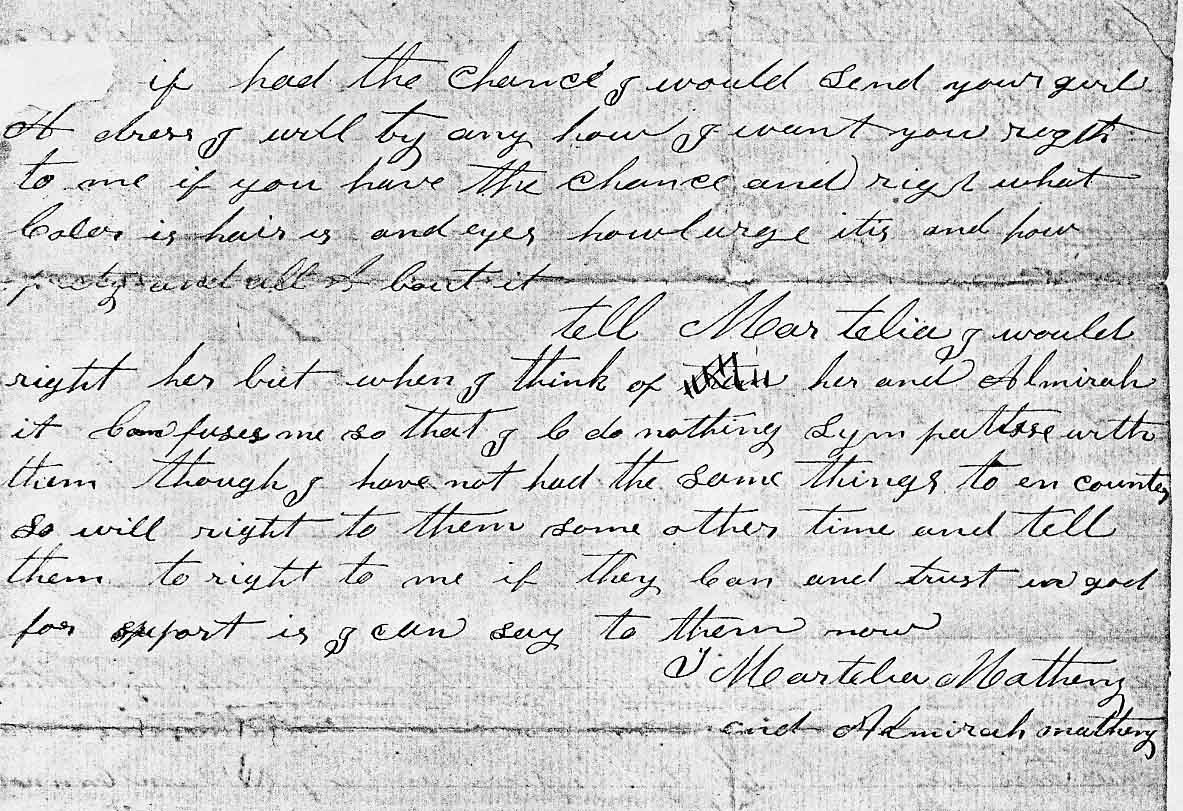 if had the chance I would send your girl
A dress I will by any how I want you rigth
to me if you have the chance and right what
Coler is hair is and eyes how large itis and how
prety and all A bout it
tell Martelia I would
right her but when I think of her and Almirah
it Confuses me so that I C do nothing Sympatisse with
them though I have not had the same things to en counter
so will right to them some other time and tell
them to right to me if they Can and trust in god
for suport is I can say to them now
T Martelia Matheny
and Almirah matheny